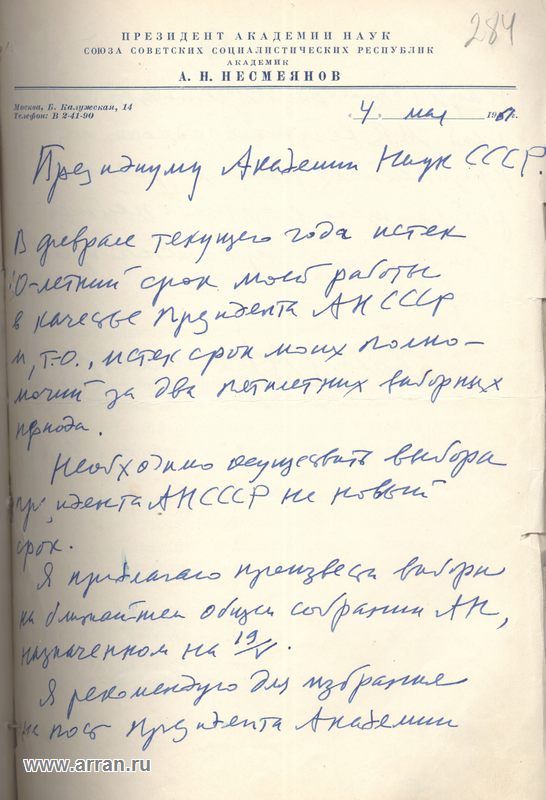 284
ПРЕЗИДЕНТ АКАДЕМИИ НАУК
СОЮЗА СОВЕТСКИХ СОЦИАЛИСТИЧЕСКИХ РЕСПУБЛИК
АКАДЕМИК
А. Н. НЕСМЕЯНОВ
Москва, Б. Калужская, 14
Телефон: В 2-41-90
«4» мая 1961г.
Президиуму Академии Наук СССР.
В феврале текущего года истек
10-летний срок моей работы
в качестве Президента АН СССР
и, т.о., истек срок моих полно-
мочий за два пятилетних выборных
периода.
Необходимо осуществить выборы
президента АН СССР на новый
срок.
Я предлагаю произвести выборы
на ближайшем общем собрании АН,
назначенном на 19/V.
Я рекомендую для избрания
на пост Президента Академии
www.arran.ru